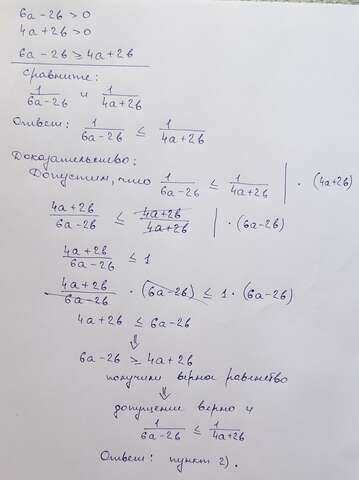 6a-2b>0
4a+2b>0
6a-2b≥4a+2b
сравните:
1/(6a-2b) и 1/(4a+2b)
Ответ: 1/(6a-2b) ≤ 1/(4a+2b)
Доказательство:
Допустим, что 1/(6a-2b) ≤ 1/(4a+2b) | · (4a+2b)
(4a+2b)/(6a-2b) ≤ (4a+2b)/(4a+2b) | · (6a-2b)
(4a+2b)/(6a-2b) ≤ 1
(4a+2b)/(6a-2b) · (6a-2b) ≤ 1 · (6a-2b)
4a+2b ≤ 6a-2b
⇓
6a-2b ≥ 4a+2b
получили верное равенство
⇓
допущение верно и
1/(6a-2b) ≤ 1/(4a+2b)
Ответ: пункт 2).